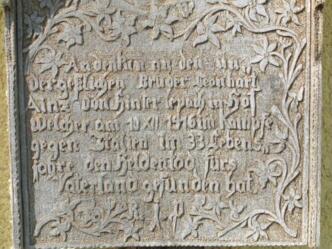 Andenken an den un
vergeßlichen Bruder Leonhart
Ainz von Hinter
welcher am 10 XII 1916 im Kampfe
gegen Italien im 33. Lebens
jahre den Heldentod fürs
Vaterland gefunden hat
R. I. P.